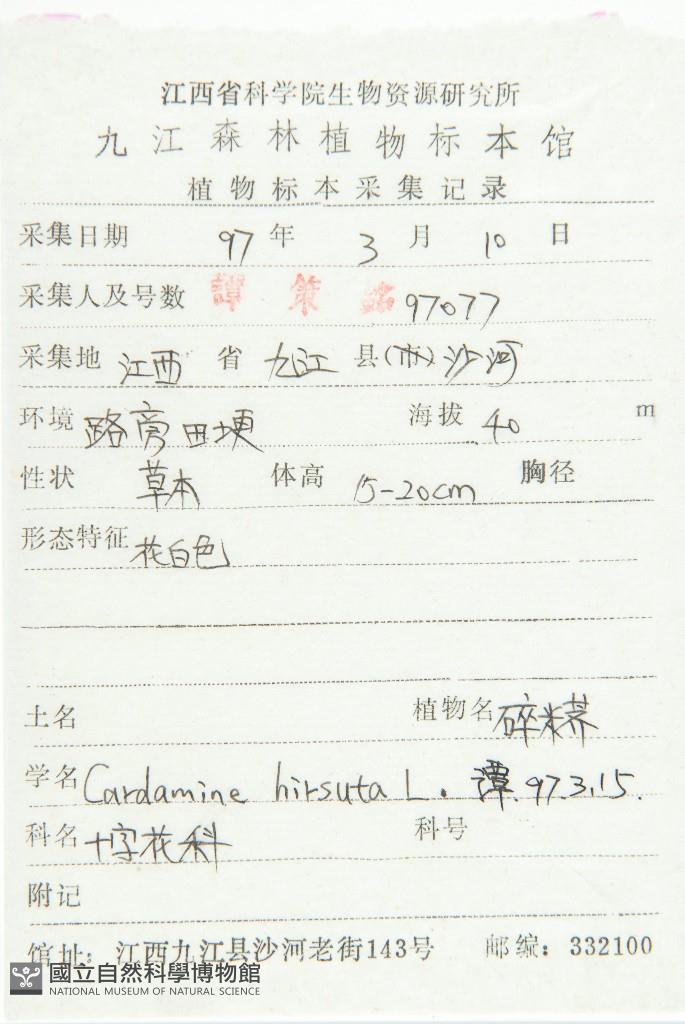 江西省科学院生物资源研究所
九江森林植物标本馆
植物标本采集记录
采集日期 97 年 3 月 10 日
采集人及号数 譚策銘 97077
采集地 江西 省 九江 县(市) 沙河
环境 路旁田埂 海拔 40 m
性状 草本 体高 15-20cm 胸径
形态特征 花白色
土名 植物名 碎米荠
学名 Cardamine hirsuta L. 譚 97.3.15.
科名 十字花科 科号
附记
馆址：江西九江县沙河老街143号 邮编：332100
國立自然科學博物館
NATIONAL MUSEUM OF NATURAL SCIENCE